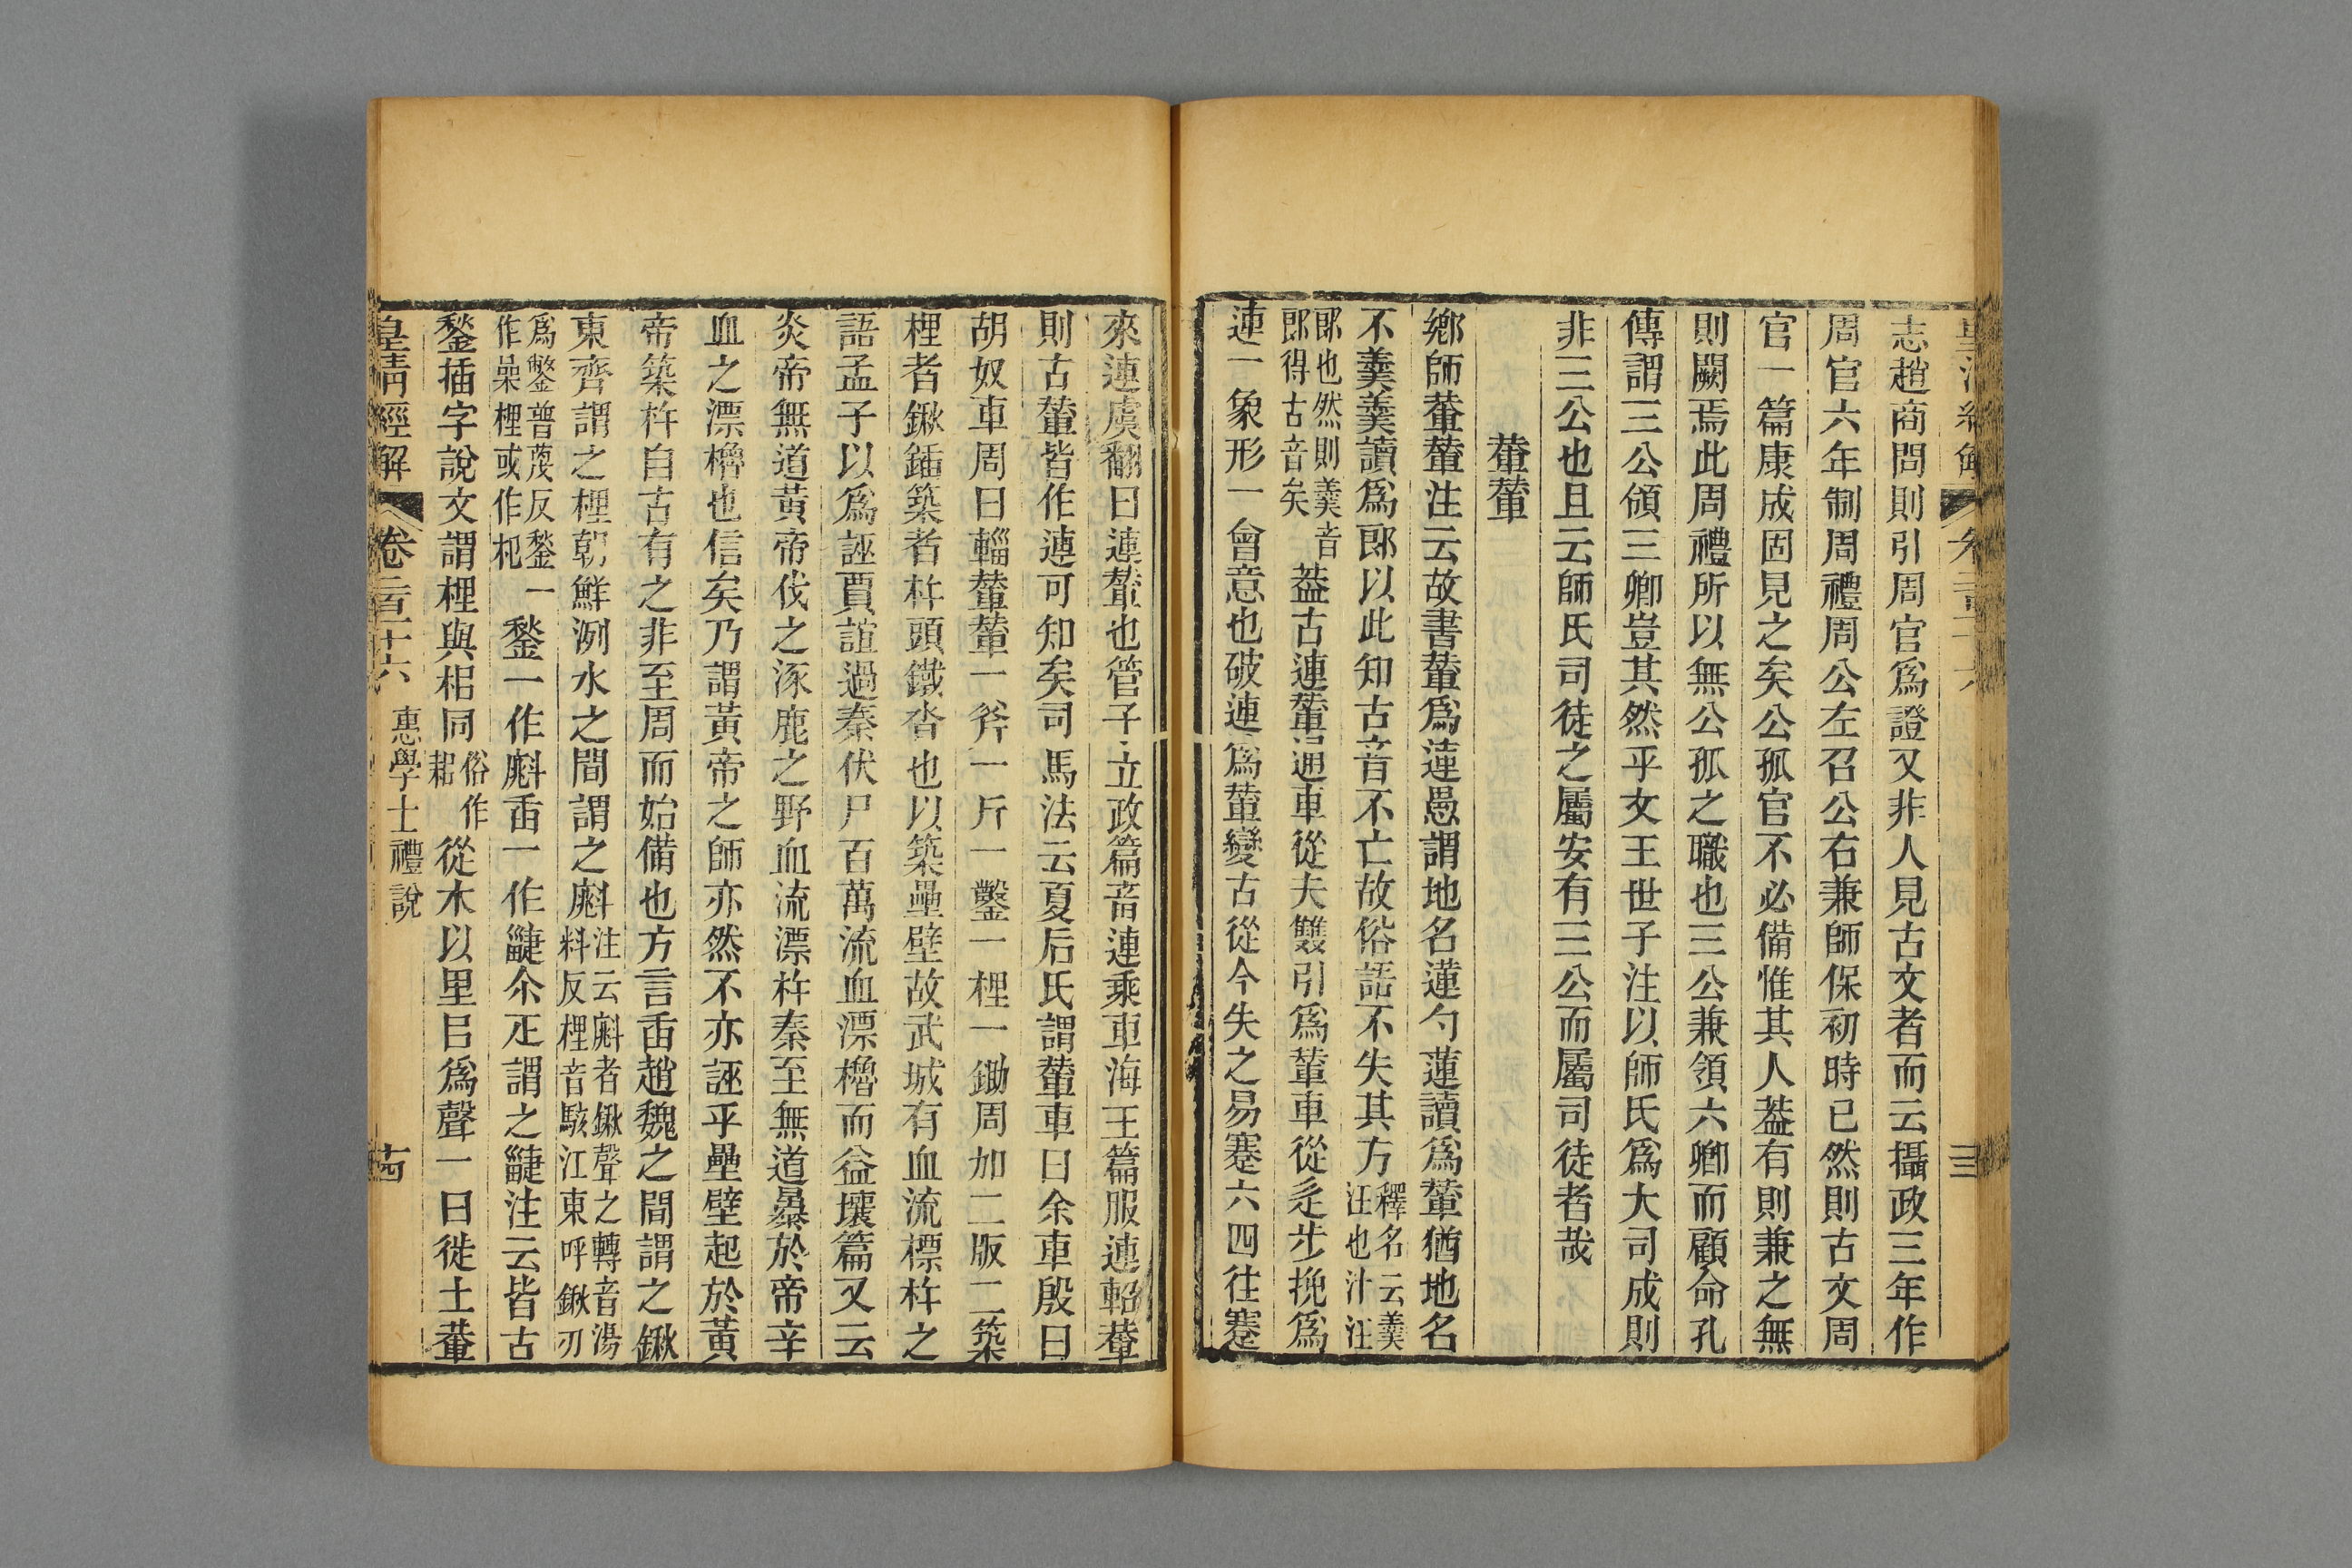 志趙商問則引周官爲證又非人見古文者而云攝政三年作
周官六年制周禮周公左召公右兼師保初時已然則古文周
官一篇康成固見之矣公孤官不必備惟其人葢有則兼之無
則闕焉此周禮所以無公孤之職也三公兼領六卿而顧命孔
傳謂三公領三卿豈其然乎文王世子注以師氏爲大司成則
非三公也且云師氏司徒之屬安有三公而屬司徒者哉
輂輦
鄉師輂輦注云故書輦爲連愚謂地名蓮勺蓮讀爲輦猶地名
不羹羹讀爲郎以此知古音不亡故俗語不失其方釋名云羹汪也汁汪
郎也然則羹音郎得古音矣葢古連輦通車從夫雙引爲輦車從辵步挽爲
連一象形一會意也破連爲輦變古從今失之易蹇六四往蹇
來連虞翻曰連輦也管子立政篇畜連乘車海王篇服連軺輦
則古輦皆作連可知矣司馬法云夏后氏謂輦車曰余車殷曰
胡奴車周曰輜輦輦一斧一斤一鑿一梩一鋤周加二版二築
梩者鍬鍤築者杵頭鐵沓也以築壘壁故武城有血流標杵之
語孟子以爲誣賈誼過秦伏尸百萬流血漂櫓而益壤篇又云
炎帝無道黃帝伐之涿鹿之野血流漂杵秦至無道暴於帝辛
血之漂櫓也信矣乃謂黃帝之師亦然不亦誣乎壘壁起於黃
帝築杵自古有之非至周而始備也方言臿趙魏之間謂之鍬
東齊謂之梩朝鮮洌水之間謂之㪿注云㪿者鍬聲之轉音湯料反梩音駭江東呼鍬刃
爲鐅普蔑反鍫一作喿梩或作杞鍫一作㪿臿一作疀尒疋謂之疀注云皆古
鍫插字說文謂梩與梠同俗作耜從木以里㠯爲聲一曰徙土輂
皇清經解
卷二百二十六
惠學士禮說
十四